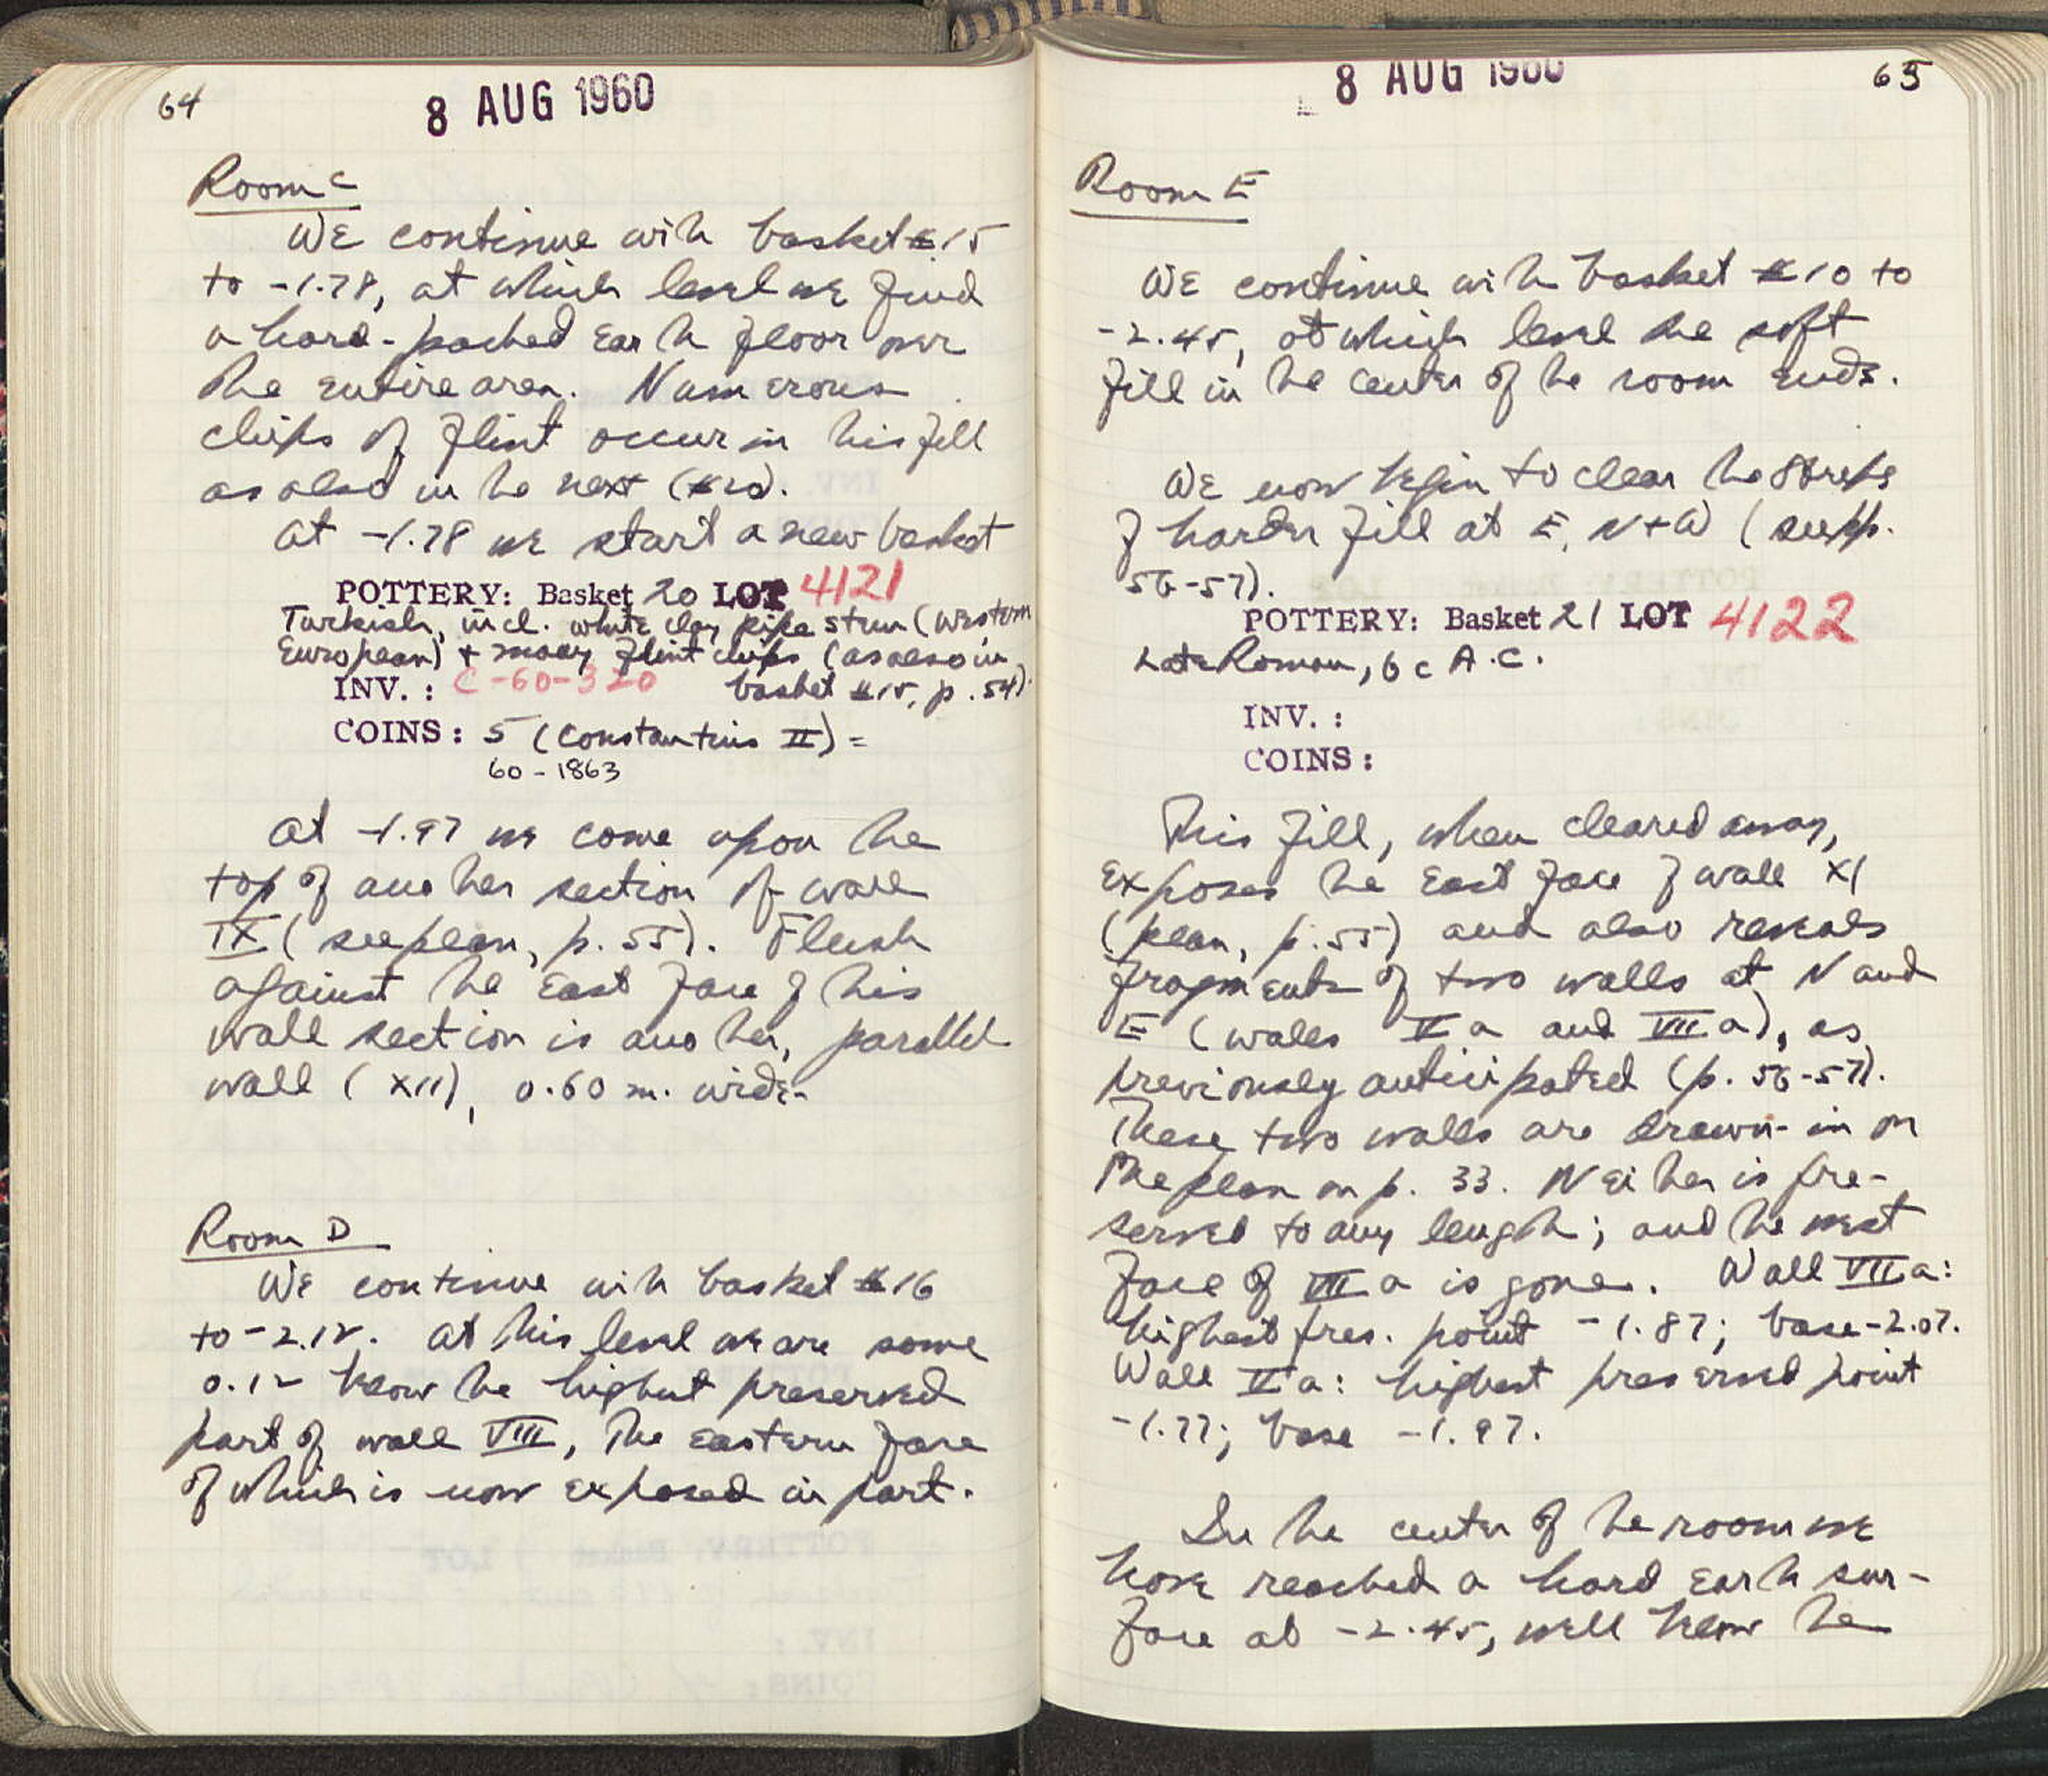 64
8 AUG 1960
Room C
We continue with basket #15
to -1.78, at which level we find
a hard-packed earth floor over
the entire area. Numerous
chips of flint occur in this fill
as also in the next (#20).
At -1.78 we start a new basket
POTTERY: Basket 20 LOT 4121
Turkish, incl. white clay pipe stem (Western
European) + many flint chips (as also in
INV. : C-60-320 basket #15, p. 54).
COINS: 5 (Constantius II) =
60-1863
At -1.97 we come upon the
top of another section of wall
IX (see plan, p. 55). Flush
against the East face of this
wall section is another, parallel
wall (XII), 0.60 m. wide.
Room D
We continue with basket #16
to -2.12. At this level we are some
0.12 below the highest preserved
part of wall VIII, the eastern face
of which is now exposed in part.
8 AUG 1960
65
Room E
We continue with basket #10 to
-2.45, at which level the soft
fill in the center of the room ends.
We now begin to clear the strips
of harder fill at E, N + W (see pp.
56-57).
POTTERY: Basket 21 LOT 4122
Late Roman, 6 c A.C.
INV. :
COINS:
This fill, when cleared away,
exposes the East face of wall XI
(plan, p. 55) and also reveals
fragments of two walls at N and
E (walls Va and VIIa), as
previously anticipated (p. 56-57).
These two walls are drawn-in on
the plan on p. 33. Neither is pre-
served to any length; and the west
face of VIIa is gone. Wall VIIa:
highest pres. point -1.87; base -2.07.
Wall Va: highest preserved point
-1.77; base -1.97.
In the center of the room we
have reached a hard earth sur-
face at -2.45, well below the